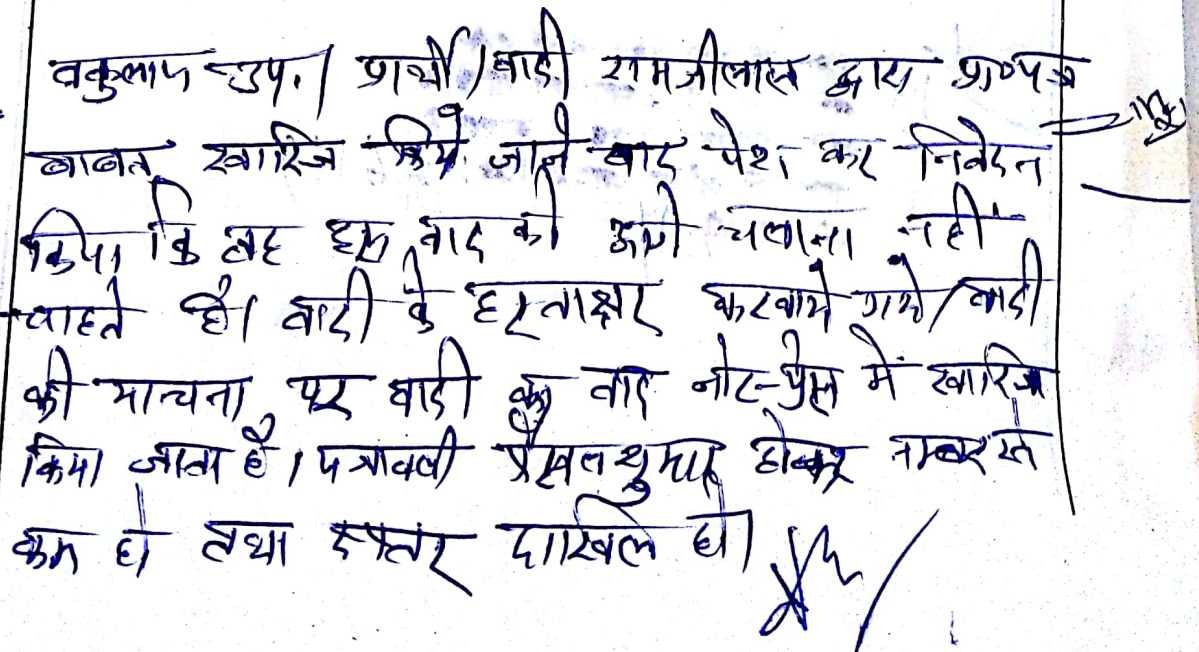 वकुलाय उप.। प्रार्थी/वादी रामजीलाल द्वारा प्रा०पत्र
बाबत खारिज किये जाने वाद पेश कर निवेदन
किया कि वह इस वाद को आगे चलाना नहीं
चाहते है। वादी के हस्ताक्षर करवाये गये। वादी
की याचना पर वादी का वाद नोट-प्रेस में खारिज
किया जाता है। पत्रावली फैसल शुमार होकर नम्बर से
कम हो तथा दफ्तर दाखिल हो।